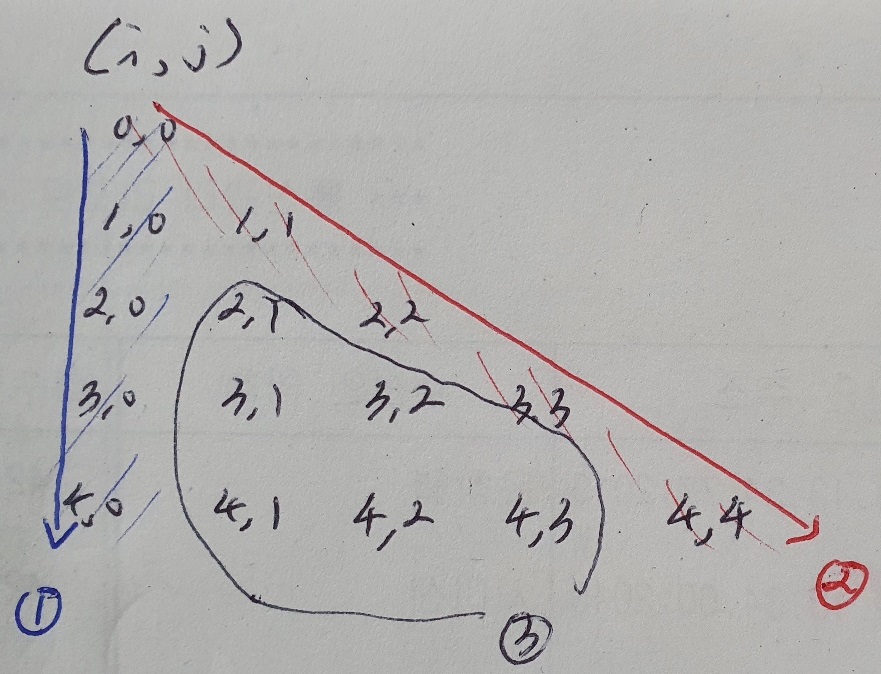 (i,j)
0,0
1,0 1,1
2,0 2,1 2,2
3,0 3,1 3,2 3,3
4,0 4,1 4,2 4,3 4,4
① ③ ②